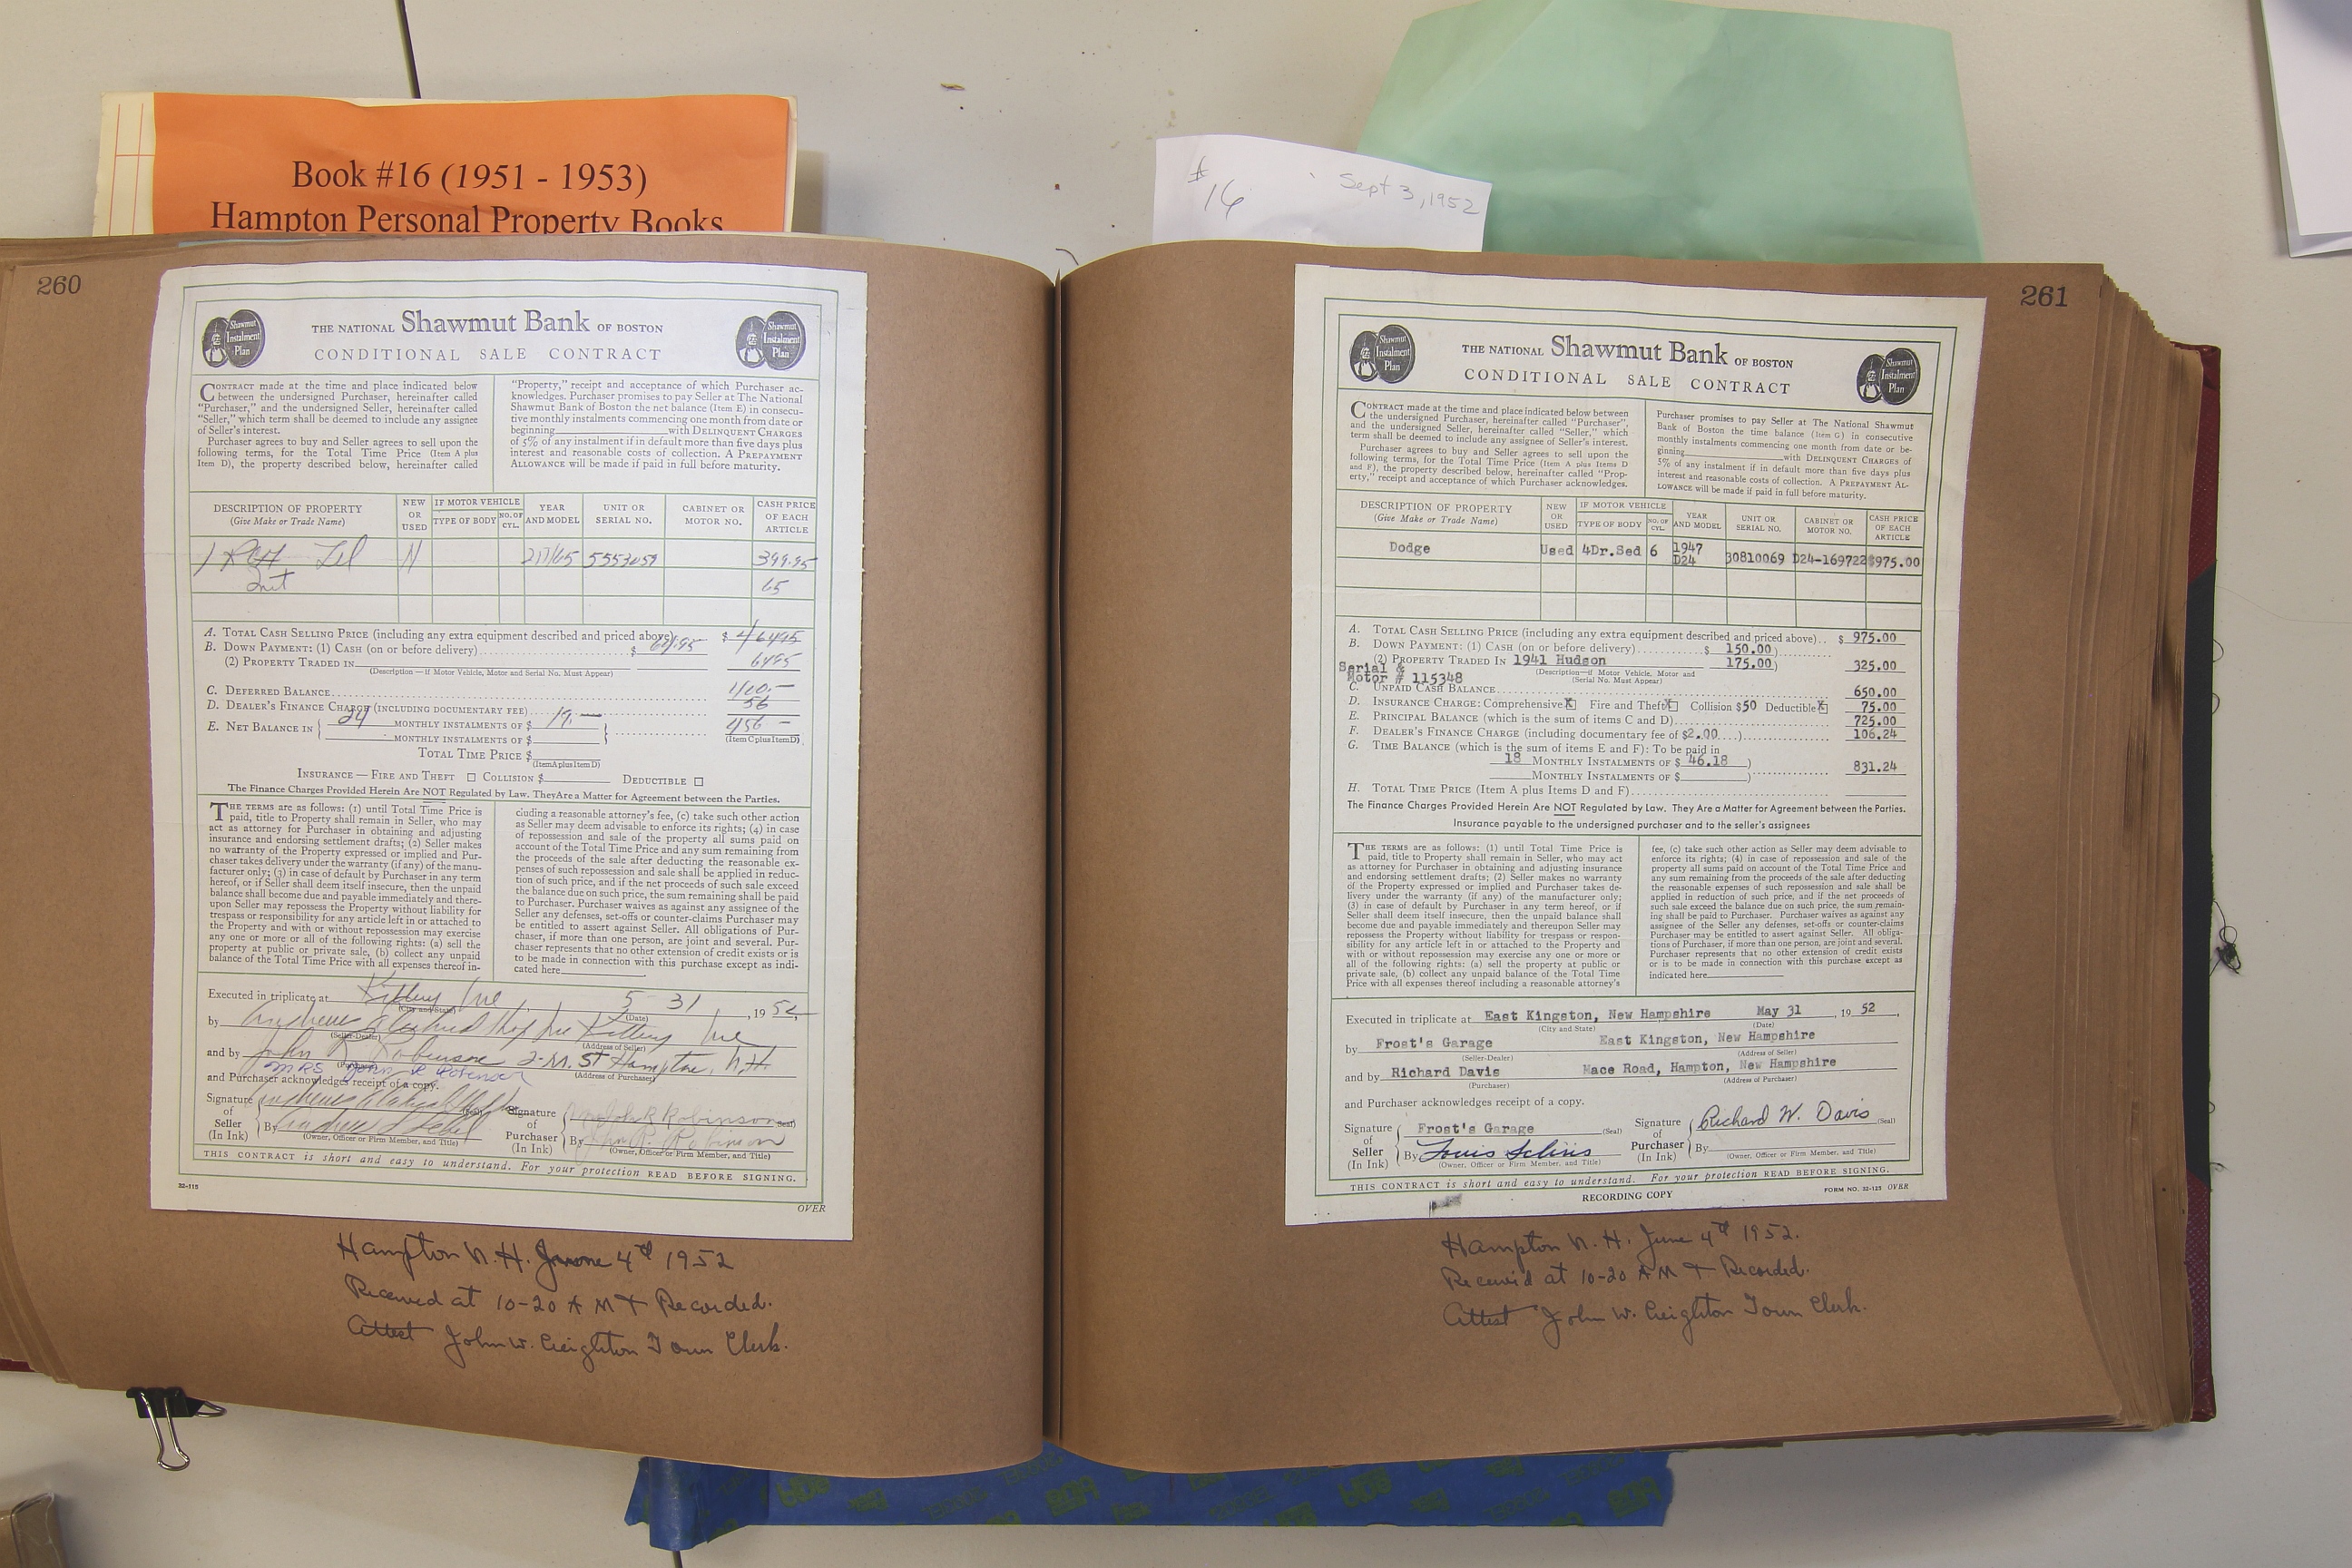 Book #16 (1951 - 1953)
Hampton Personal Property Books
16
Sept 3, 1952
260
Shawmut
Instalment
Plan
THE NATIONAL Shawmut Bank OF BOSTON
CONDITIONAL SALE CONTRACT
Shawmut
Instalment
Plan
CONTRACT made at the time and place indicated below
between the undersigned Purchaser, hereinafter called
"Purchaser," and the undersigned Seller, hereinafter called
"Seller," which term shall be deemed to include any assignee
of Seller's interest.
Purchaser agrees to buy and Seller agrees to sell upon the
following terms, for the Total Time Price (Item A plus
Item D), the property described below, hereinafter called
"Property," receipt and acceptance of which Purchaser ac-
knowledges. Purchaser promises to pay Seller at The National
Shawmut Bank of Boston the net balance (Item E) in consecu-
tive monthly instalments commencing one month from date or
beginning with DELINQUENT CHARGES
of 5% of any instalment if in default more than five days plus
interest and reasonable costs of collection. A PREPAYMENT
ALLOWANCE will be made if paid in full before maturity.
DESCRIPTION OF PROPERTY
(Give Make or Trade Name)
NEW OR USED
IF MOTOR VEHICLE
TYPE OF BODY
NO. OF CYL.
YEAR AND MODEL
UNIT OR SERIAL NO.
CABINET OR MOTOR NO.
CASH PRICE OF EACH ARTICLE
1 Tel N 399.95
65
A. TOTAL CASH SELLING PRICE (including any extra equipment described and priced above) $ 464 95
B. DOWN PAYMENT: (1) CASH (on or before delivery) $ 64.95
(2) PROPERTY TRADED IN 64 95
(Description—if Motor Vehicle, Motor and Serial No. Must Appear)
C. DEFERRED BALANCE 400.—
D. DEALER'S FINANCE CHARGE (INCLUDING DOCUMENTARY FEE) 56
E. NET BALANCE IN 24 MONTHLY INSTALMENTS OF $ 19.— 456 —
MONTHLY INSTALMENTS OF $ (Item C plus Item D)
TOTAL TIME PRICE $
(Item A plus Item D)
INSURANCE — FIRE AND THEFT COLLISION $ DEDUCTIBLE
The Finance Charges Provided Herein Are NOT Regulated by Law. They Are a Matter for Agreement between the Parties.
THE TERMS are as follows: (1) until Total Time Price is
paid, title to Property shall remain in Seller, who may
act as attorney for Purchaser in obtaining and adjusting
insurance and endorsing settlement drafts; (2) Seller makes
no warranty of the Property expressed or implied and Pur-
chaser takes delivery under the warranty (if any) of the manu-
facturer only; (3) in case of default by Purchaser in any term
hereof, or if Seller shall deem itself insecure, then the unpaid
balance shall become due and payable immediately and there-
upon Seller may repossess the Property without liability for
trespass or responsibility for any article left in or attached to
the Property and with or without repossession may exercise
any one or more or all of the following rights: (a) sell the
property at public or private sale, (b) collect any unpaid
balance of the Total Time Price with all expenses thereof in-
cluding a reasonable attorney's fee, (c) take such other action
as Seller may deem advisable to enforce its rights; (4) in case
of repossession and sale of the property all sums paid on
account of the Total Time Price and any sum remaining from
the proceeds of the sale after deducting the reasonable ex-
penses of such repossession and sale shall be applied in reduc-
tion of such price, and if the net proceeds of such sale exceed
the balance due on such price, the sum remaining shall be paid
to Purchaser. Purchaser waives as against any assignee of the
Seller any defenses, set-offs or counter-claims Purchaser may
be entitled to assert against Seller. All obligations of Pur-
chaser, if more than one person, are joint and several. Pur-
chaser represents that no other extension of credit exists or is
to be made in connection with this purchase except as indi-
cated here
Executed in triplicate at Kittery Me 5 31, 19 52
(City and State) (Date)
by Kittery Me
(Seller-Dealer) (Address of Seller)
and by John R Robinson St Hampton, N.H.
(Address of Purchaser)
Mrs John R
and Purchaser acknowledges receipt of a copy.
Signature
of
Seller
(In Ink)
By
(Owner, Officer or Firm Member, and Title)
Signature
of
Purchaser
(In Ink)
John R Robinson (Seal)
By John R. Robinson
(Owner, Officer or Firm Member, and Title)
THIS CONTRACT is short and easy to understand. For your protection READ BEFORE SIGNING.
22-115
OVER
Hampton N.H. June 4th 1952
Received at 10-20 AM + Recorded.
Attest John W. Creighton Town Clerk.
261
Shawmut
Instalment
Plan
THE NATIONAL Shawmut Bank OF BOSTON
CONDITIONAL SALE CONTRACT
Shawmut
Instalment
Plan
CONTRACT made at the time and place indicated below between
the undersigned Purchaser, hereinafter called "Purchaser",
and the undersigned Seller, hereinafter called "Seller," which
term shall be deemed to include any assignee of Seller's interest.
Purchaser agrees to buy and Seller agrees to sell upon the
following terms, for the Total Time Price (Item A plus Items D
and F), the property described below, hereinafter called "Prop-
erty," receipt and acceptance of which Purchaser acknowledges.
Purchaser promises to pay Seller at The National Shawmut
Bank of Boston the time balance (Item G) in consecutive
monthly instalments commencing one month from date or be-
ginning with DELINQUENT CHARGES of
5% of any instalment if in default more than five days plus
interest and reasonable costs of collection. A PREPAYMENT AL-
LOWANCE will be made if paid in full before maturity.
DESCRIPTION OF PROPERTY
(Give Make or Trade Name)
NEW OR USED
IF MOTOR VEHICLE
TYPE OF BODY
NO. OF CYL.
YEAR AND MODEL
UNIT OR SERIAL NO.
CABINET OR MOTOR NO.
CASH PRICE OF EACH ARTICLE
Dodge Used 4Dr.Sed 6 1947 D24 30810069 D24-169722 $975.00
A. TOTAL CASH SELLING PRICE (including any extra equipment described and priced above).. $ 975.00
B. DOWN PAYMENT: (1) CASH (on or before delivery) $ 150.00)
(2) PROPERTY TRADED IN 1941 Hudson 175.00) 325.00
Serial &
Motor # 115348 (Description—if Motor Vehicle, Motor and Serial No. Must Appear)
C. UNPAID CASH BALANCE 650.00
D. INSURANCE CHARGE: Comprehensive X Fire and Theft X Collision $50 Deductible X 75.00
E. PRINCIPAL BALANCE (which is the sum of items C and D) 725.00
F. DEALER'S FINANCE CHARGE (including documentary fee of $2.00) 106.24
G. TIME BALANCE (which is the sum of items E and F): To be paid in
18 MONTHLY INSTALMENTS OF $ 46.18 ) 831.24
MONTHLY INSTALMENTS OF $ )
H. TOTAL TIME PRICE (Item A plus Items D and F)
The Finance Charges Provided Herein Are NOT Regulated by Law. They Are a Matter for Agreement between the Parties.
Insurance payable to the undersigned purchaser and to the seller's assignees
THE TERMS are as follows: (1) until Total Time Price is
paid, title to Property shall remain in Seller, who may act
as attorney for Purchaser in obtaining and adjusting insurance
and endorsing settlement drafts; (2) Seller makes no warranty
of the Property expressed or implied and Purchaser takes de-
livery under the warranty (if any) of the manufacturer only;
(3) in case of default by Purchaser in any term hereof, or if
Seller shall deem itself insecure, then the unpaid balance shall
become due and payable immediately and thereupon Seller may
repossess the Property without liability for trespass or respon-
sibility for any article left in or attached to the Property and
with or without repossession may exercise any one or more or
all of the following rights: (a) sell the property at public or
private sale, (b) collect any unpaid balance of the Total Time
Price with all expenses thereof including a reasonable attorney's
fee, (c) take such other action as Seller may deem advisable to
enforce its rights; (4) in case of repossession and sale of the
property all sums paid on account of the Total Time Price and
any sum remaining from the proceeds of the sale after deducting
the reasonable expenses of such repossession and sale shall be
applied in reduction of such price, and if the net proceeds of
such sale exceed the balance due on such price, the sum remain-
ing shall be paid to Purchaser. Purchaser waives as against any
assignee of the Seller any defenses, set-offs or counter-claims
Purchaser may be entitled to assert against Seller. All obliga-
tions of Purchaser, if more than one person, are joint and several.
Purchaser represents that no other extension of credit exists
or is to be made in connection with this purchase except as
indicated here
Executed in triplicate at East Kingston, New Hampshire May 31, 19 52.
(City and State) (Date)
by Frost's Garage East Kingston, New Hampshire
(Seller-Dealer) (Address of Seller)
and by Richard Davis Mace Road, Hampton, New Hampshire
(Purchaser) (Address of Purchaser)
and Purchaser acknowledges receipt of a copy.
Signature
of
Seller
(In Ink)
Frost's Garage (Seal)
By Louis
(Owner, Officer or Firm Member, and Title)
Signature
of
Purchaser
(In Ink)
Richard W. Davis (Seal)
By
(Owner, Officer or Firm Member, and Title)
THIS CONTRACT is short and easy to understand. For your protection READ BEFORE SIGNING.
RECORDING COPY
FORM NO. 22-123 OVER
Hampton N. H. June 4th 1952.
Received at 10-20 AM + Recorded.
Attest John W. Creighton Town Clerk.